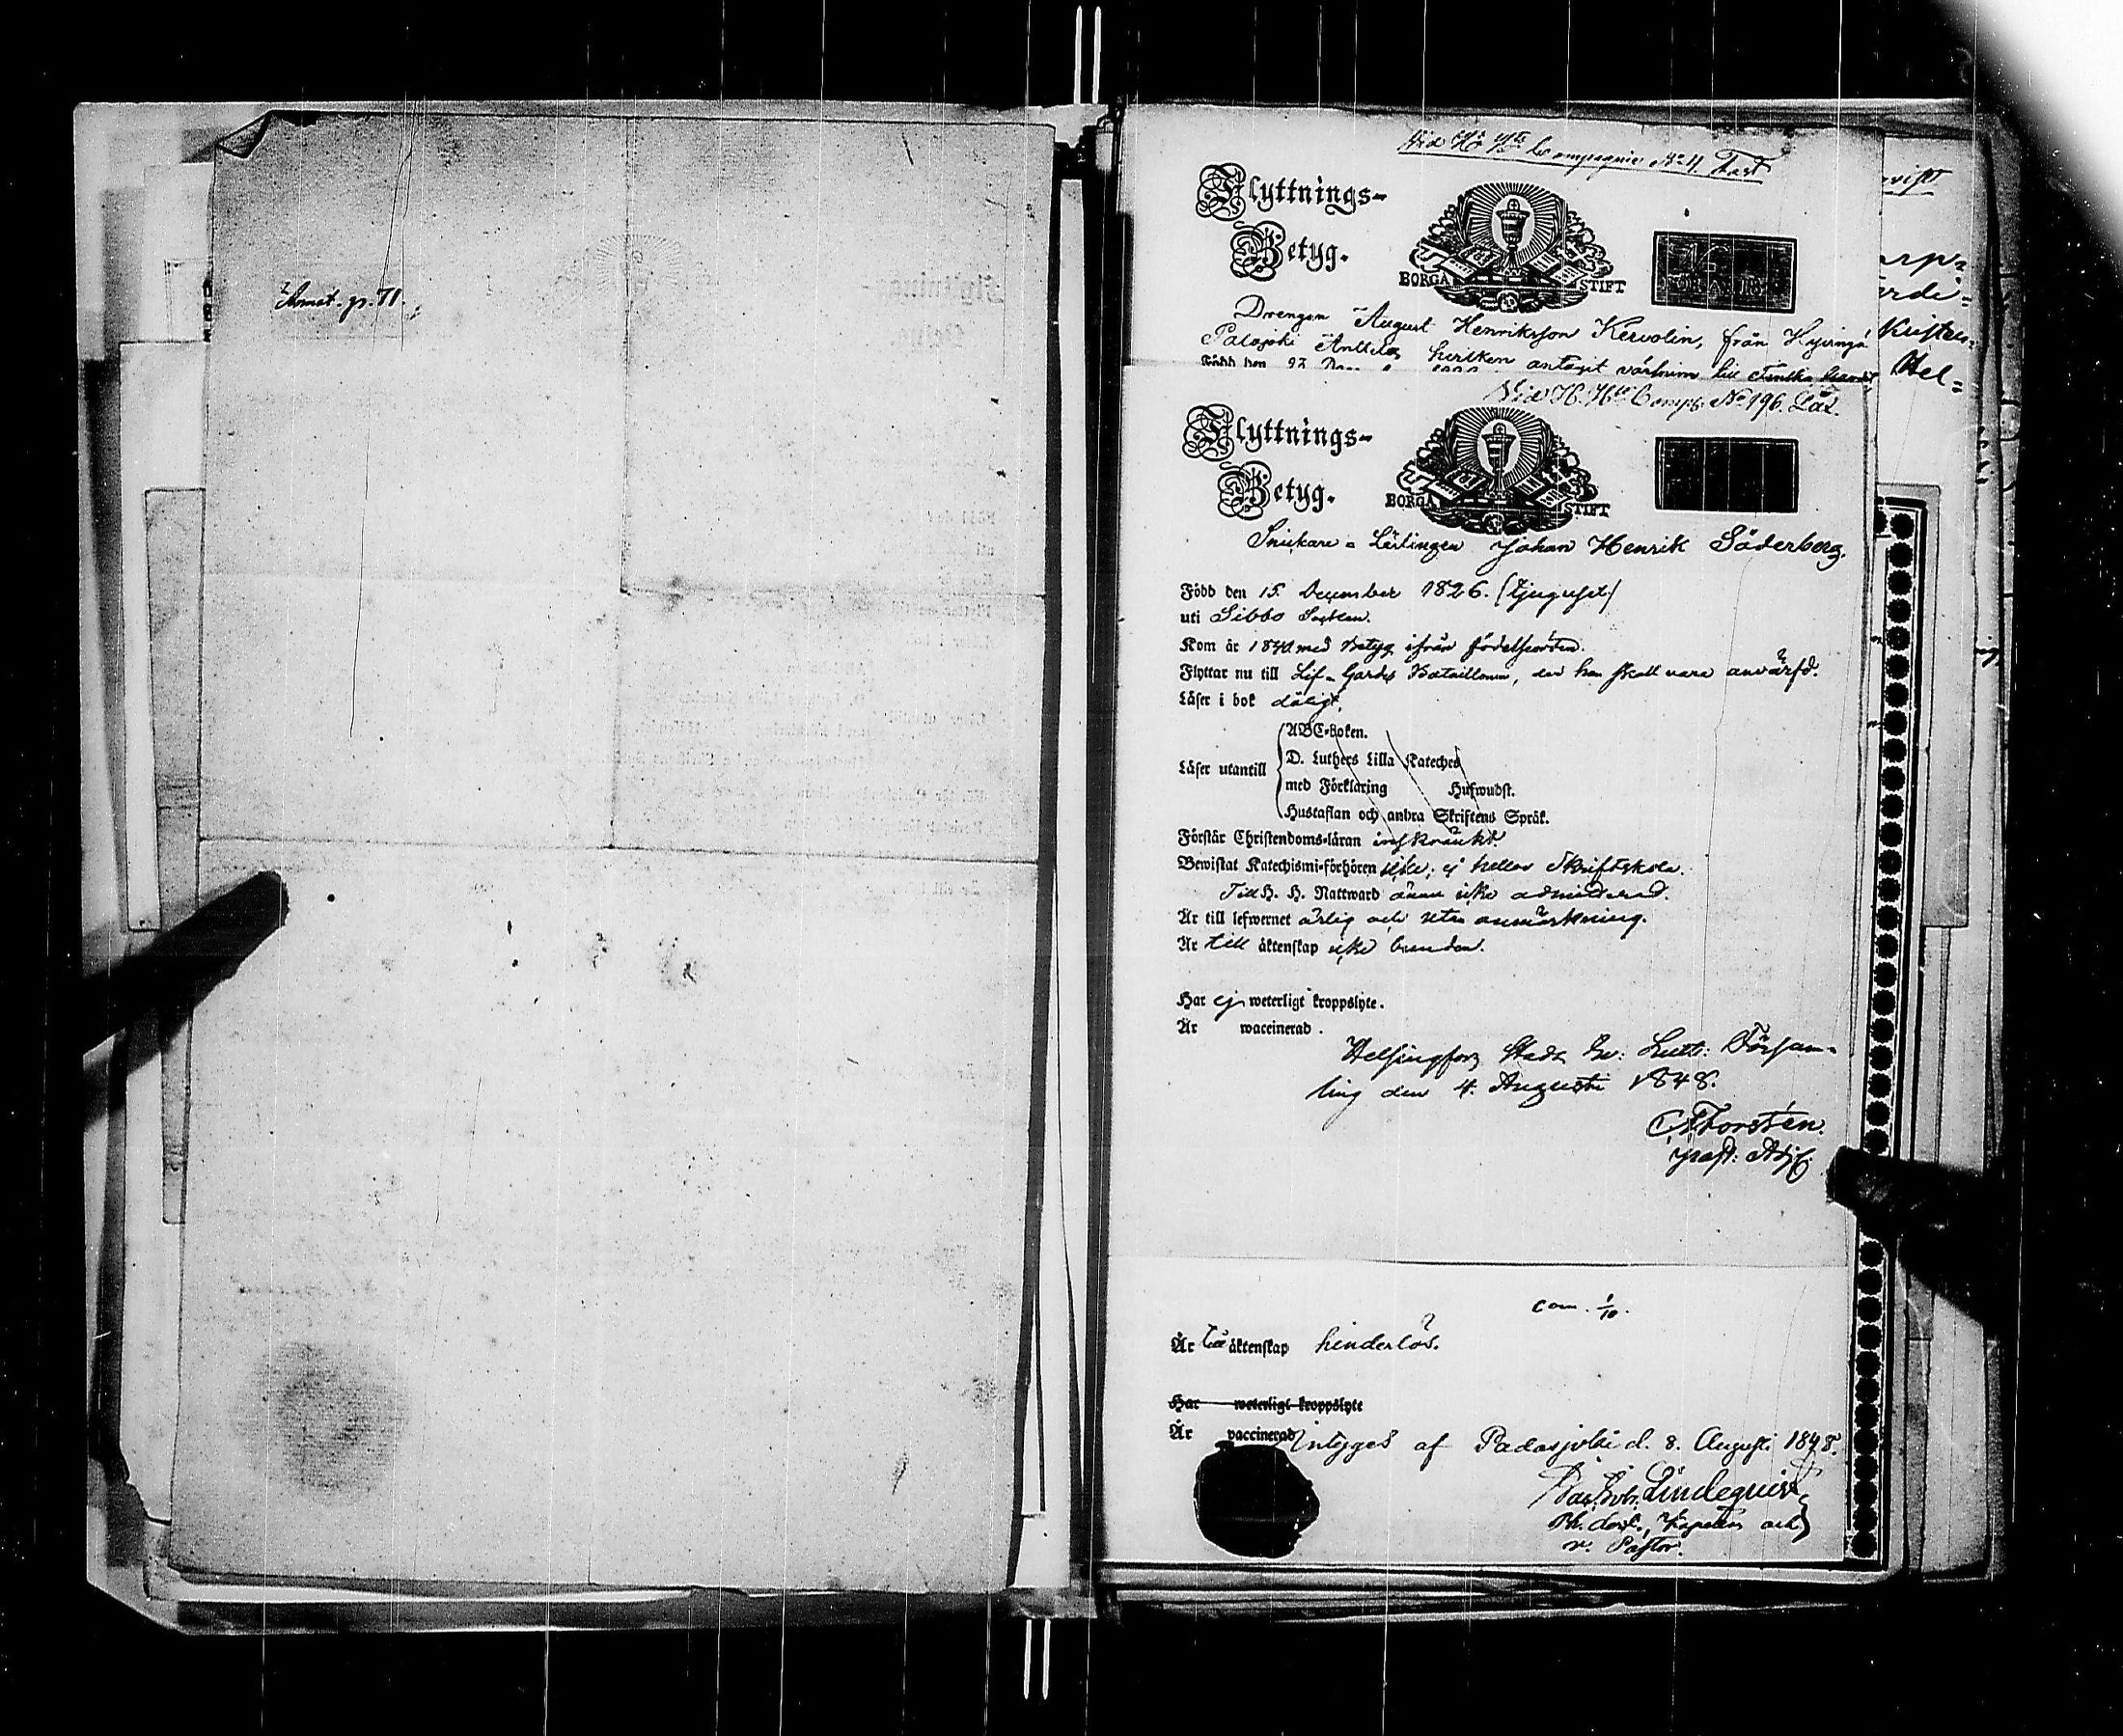 Annot. p. 71.
Vid H. Hts Compagnie No 4. Fast
Flyttnings-
Betyg.
BORGÅ STIFT
Drengen August Henriksson Kervolin, från Hyvingä
Palojoki Anttila, hvilken antagit värfning till Finska
Född den 23 Dec
Vid H. Hts Comp. No 196. Läx.
Flyttnings-
Betyg.
BORGÅ STIFT
Snickare-Lärlingen Johan Henrik Söderberg.
Född den 15 December 1826. (tjugusex)
uti Sibbo Socken.
Kom år 1840 med Betyg ifrån födelseorten.
Flyttar nu till Lif-Gardes Bataillonen, der han skall vara anvärfd.
Läser i bok dåligt,
Läser utantill
ABC-boken.
D. Luthers Lilla Kateches
med Förklaring Hufwudst.
Hustaflan och andra Skriftens Språk.
Förstår Christendoms-läran inskränkt.
Bewistat Katechismi-förhören icke, ej heller Skriftskola.
Till H. H. Nattward ännu icke admitterad.
Är till lefwernet ärlig och utan anmärkning.
Är till äktenskap icke bunden.
Har ej weterligt kroppslyte.
Är waccinerad.
Helsingfors Stads Ev: Luth: Försam-
ling den 4. Augusti 1848.
C Forstén.
past: Adj:
Com. 1/10.
Är till äktenskap hinderlös.
Har weterligt kroppslyte
Är vaccinerad
Intygas af Padasjoki d. 8. Augusti 1848.
Lindequist
Ph. Doct., Kapellan och
v. Pastor.
Kristen-
Hel=